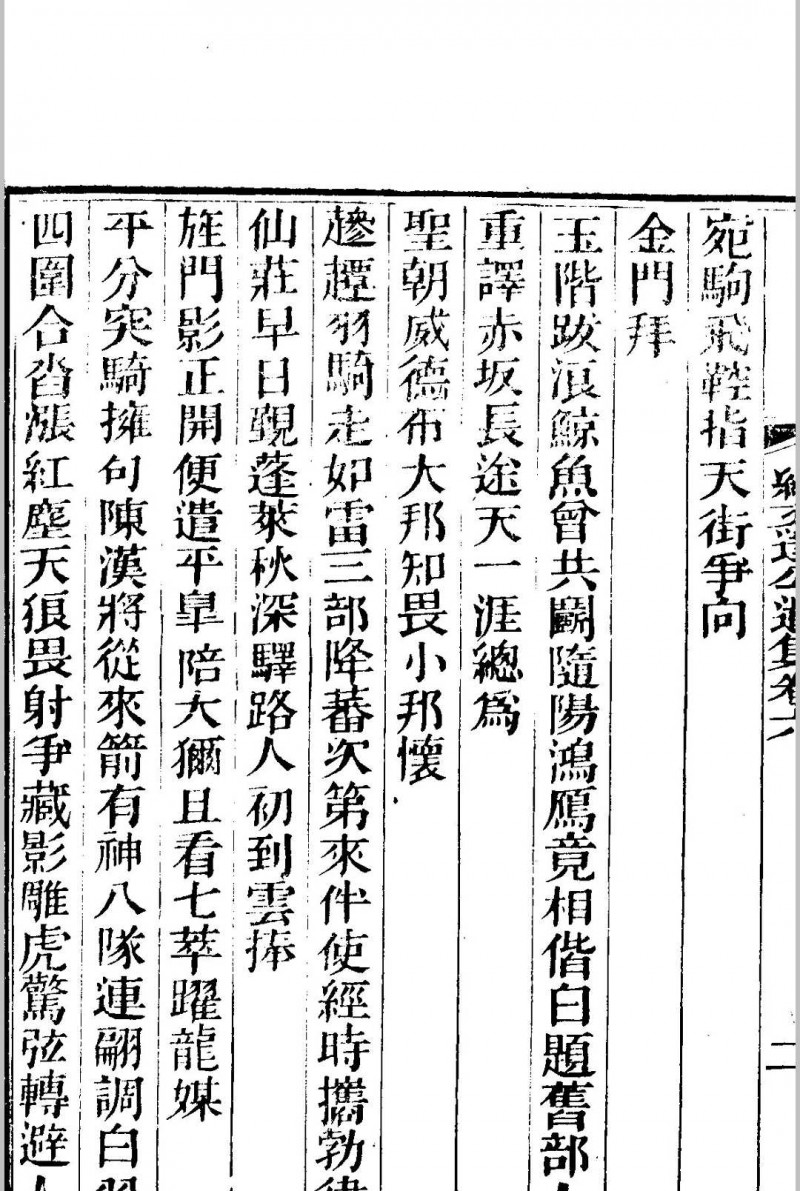 遺集卷六
二
宛駒飛鞚指天街爭向
金門拜
玉階跋浪鯨魚曾共鬭隨陽鴻鴈竟相偕白題舊部人
重譯赤坂長途天一涯總爲
聖朝威德布大邦知畏小邦懷
趁趯羽騎走如雷三部降蕃次第來伴使經時攜勃律
仙莊早日覲蓬萊秋深驛路人初到雲捧
旌門影正開便遣平皐陪大獮且看七萃躍龍媒
平分突騎擁句陳漢將從來箭有神八隊連翩調白羽
四圍合沓漲紅塵天狼畏射爭藏影雕虎驚弦轉避人